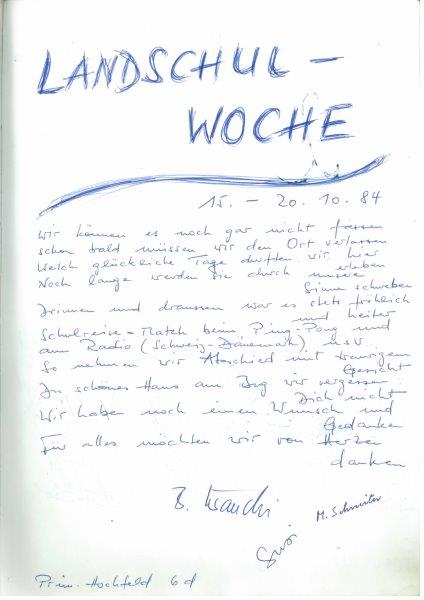 LANDSCHUL-
WOCHE
15. - 20. 10. 84
Wir können es noch gar nicht fassen
schon bald müssen wir den Ort verlassen
Welch glückliche Tage durften wir hier
erleben
Noch lange werden sie durch unsere
Sinne schweben
Drinnen und draussen war es stets fröhlich
und heiter
Schulreise-Match beim Ping-Pong und
am Radio (Schweiz-Dänemark) usw
So nehmen wir Abschied mit traurigem
Gesicht
Du schönes Haus am Zug wir vergessen
Dich nicht
Wir haben noch einen Wunsch und
Gedanken
Für alles möchten wir von Herzen
danken
B.
M. Schmuter
Prim. Hochfeld 6d